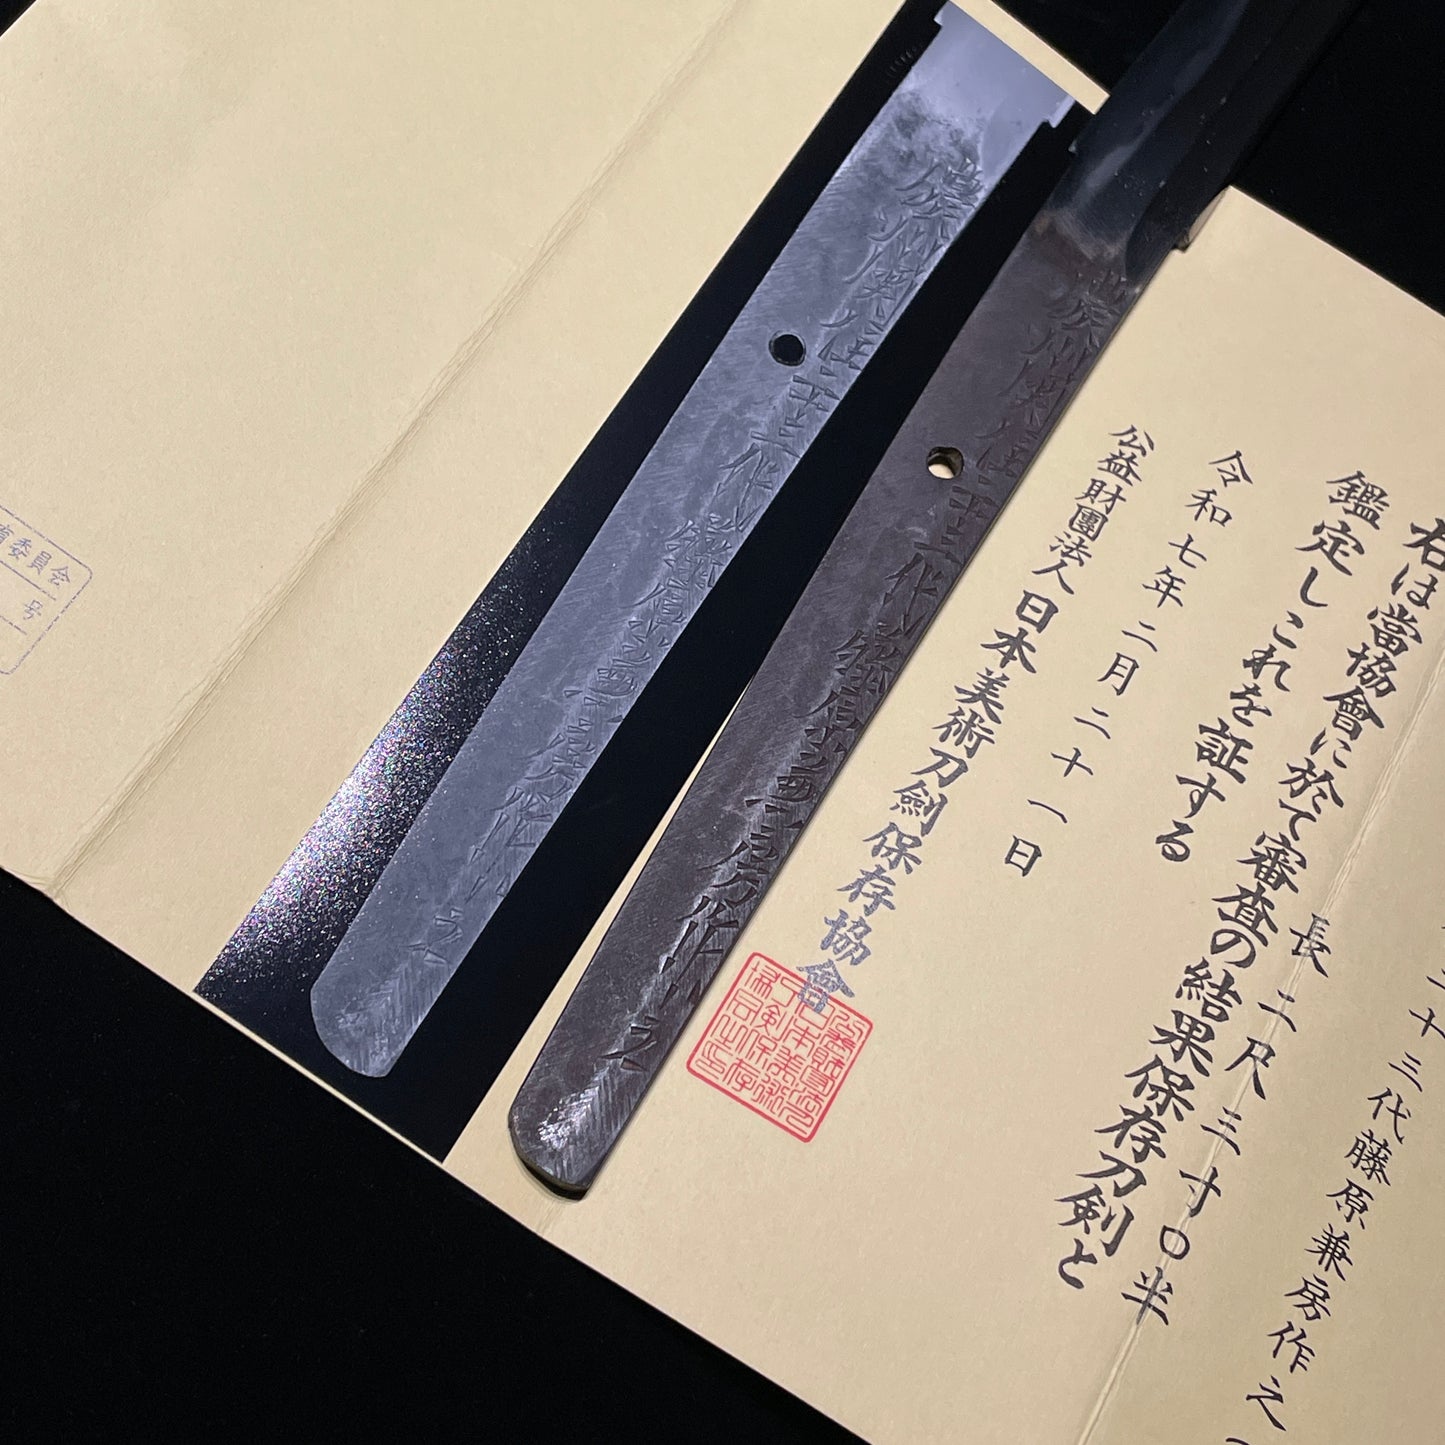 二十三代藤原兼房作之
長二尺三寸〇半
右は當協會に於て審査の結果保存刀剣と
鑑定しこれを証する
令和七年二月二十一日
公益財團法人日本美術刀劍保存協會
濃州関住二十三代藤原兼房作之
濃州関住二十三代藤原兼房作之
委員会
号